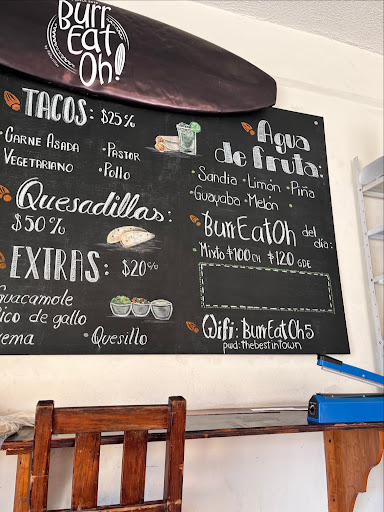 Burr
Eat
Oh!
TACOS: $25 c/u
• Carne Asada
• Pastor
Vegetariano
• Pollo
Quesadillas:
$50 c/u
EXTRAS: $20 c/u
Guacamole
Pico de gallo
• Quesillo
Agua
de fruta:
• Sandía • Limón • Piña
Guayaba • Melón
BurrEatOh del
día:
Mixto $100 CH $120 GDE
Wifi: BurrEatOh5
pwd: thebestintown